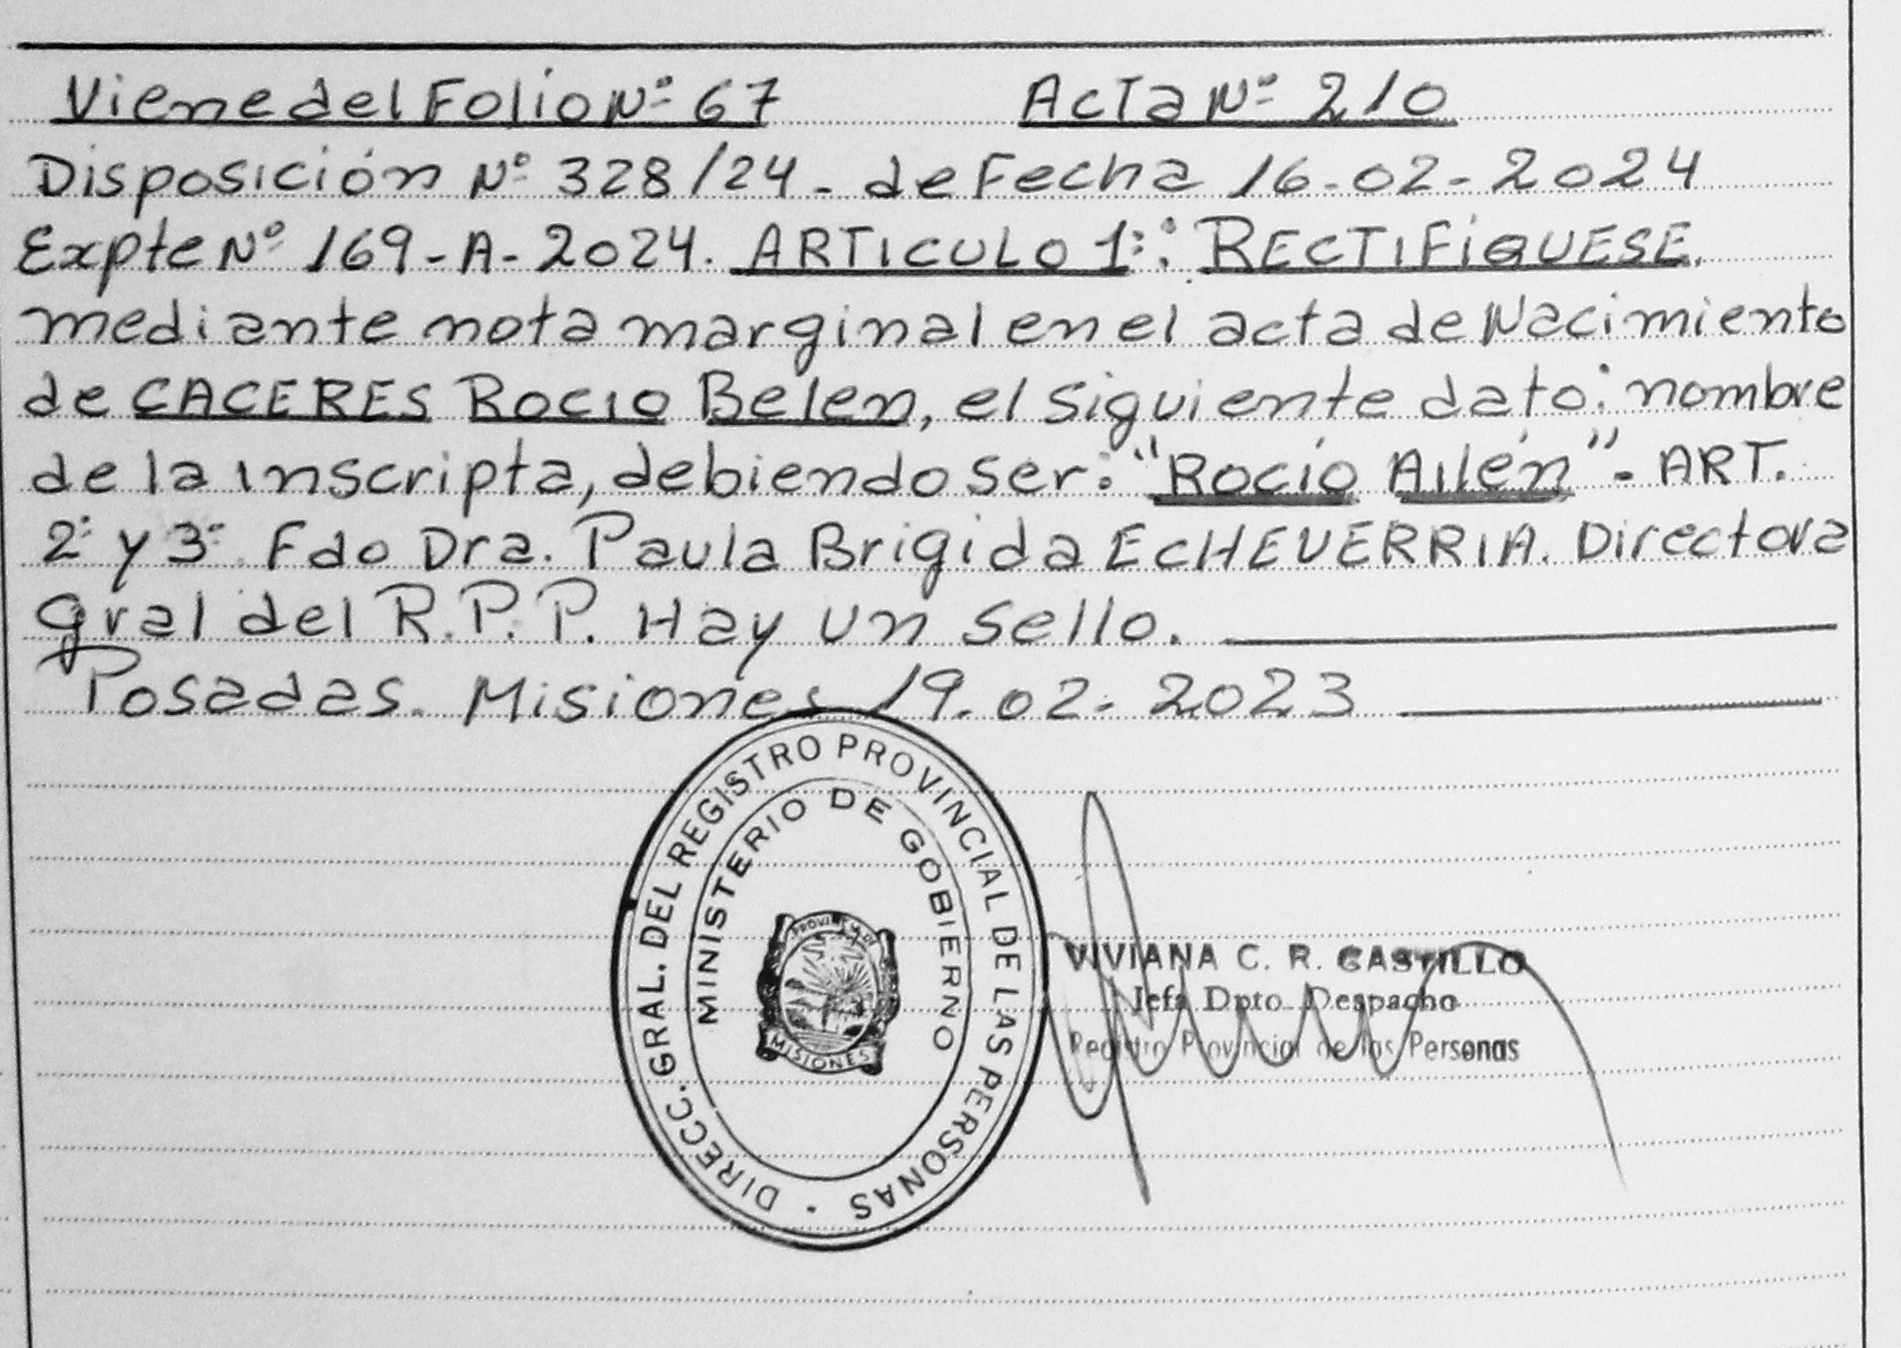 Viene del Folio Nº 67 Acta Nº 210
Disposición Nº 328/24 - de Fecha 16-02-2024
Expte Nº 169-A-2024. ARTICULO 1º: RECTIFIQUESE,
mediante nota marginal en el acta de Nacimiento
de CACERES Rocio Belen, el siguiente dato: nombre
de la inscripta, debiendo ser: "Rocío Ailén"- ART.
2º y 3º Fdo Dra. Paula Brigida ECHEVERRIA. Directora
Gral del R.P.P. Hay un sello.
Posadas. Misiones 19-02-2023
DIRECC. GRAL. DEL REGISTRO PROVINCIAL DE LAS PERSONAS
MINISTERIO DE GOBIERNO
PROVINCIA DE
MISIONES
VIVIANA C. R. CASTILLO
Jefa Dpto. Despacho
Registro Provincial de las Personas